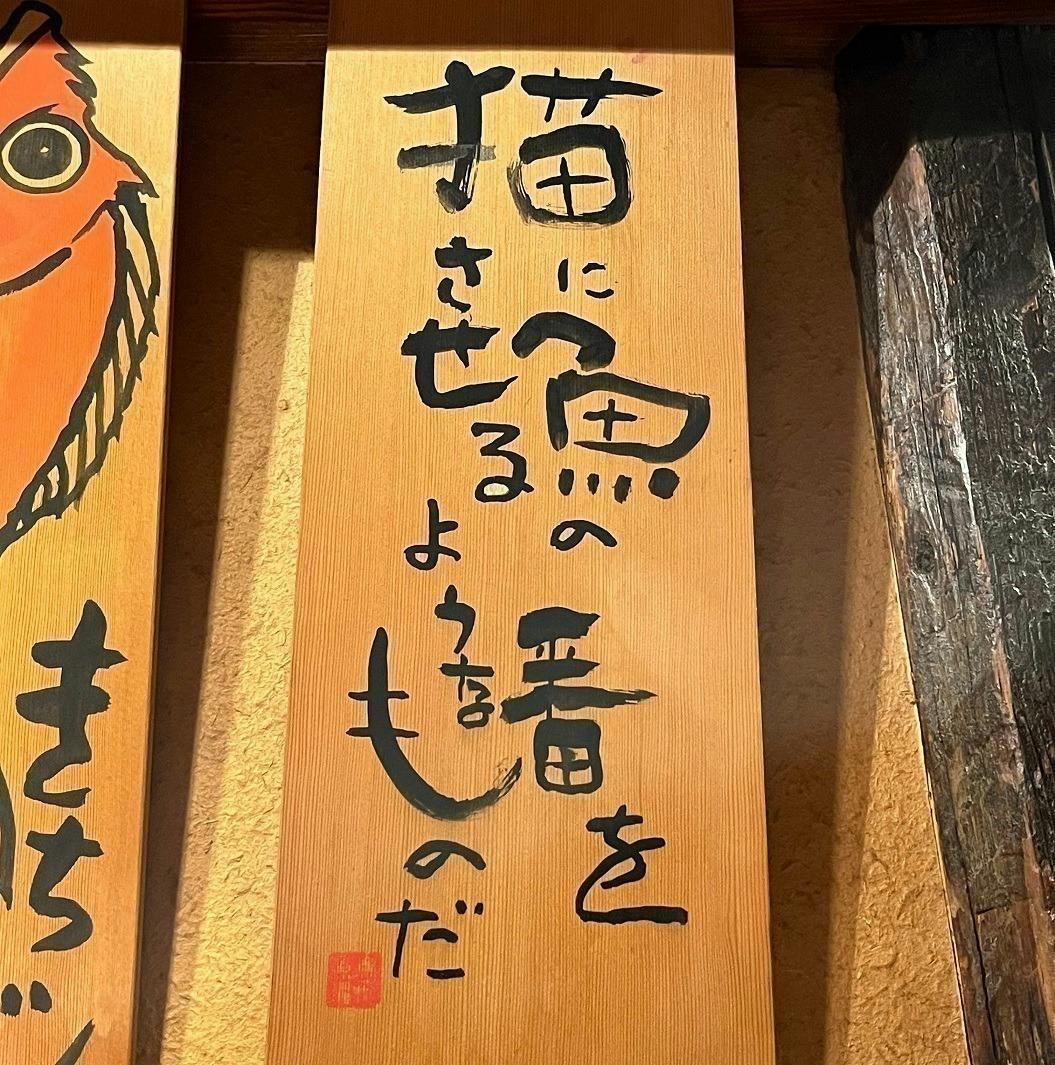 描に魚の番を
させるようなものだ
きち